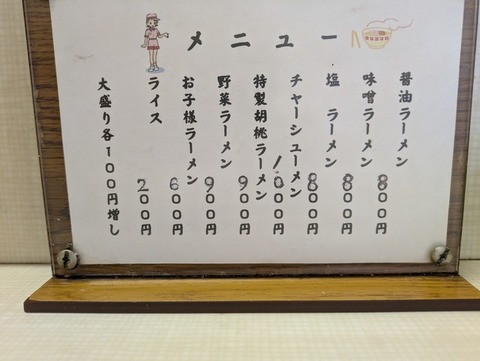 メニュー
醤油ラーメン 800円
味噌ラーメン 800円
塩 ラーメン 800円
チャーシューメン 1000円
特製胡桃ラーメン 900円
野菜ラーメン 900円
お子様ラーメン 600円
ライス 200円
大盛り各100円増し